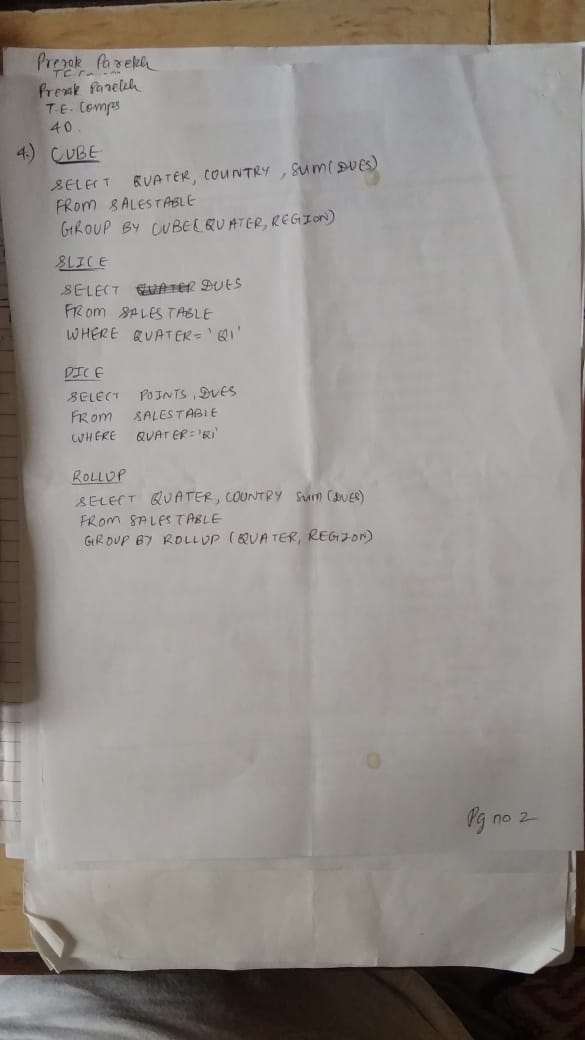 Prerak Parekh
Prerak Parekh
T.E. Comps
40.
4.) CUBE
SELECT QUATER, COUNTRY, SUM(DUES)
FROM SALESTABLE
GROUP BY CUBE(QUATER, REGION)
SLICE
SELECT QUATER DUES
FROM SALESTABLE
WHERE QUATER='Q1'
DICE
SELECT POINTS, DUES
FROM SALESTABLE
WHERE QUATER='Q1'
ROLLUP
SELECT QUATER, COUNTRY SUM(DUES)
FROM SALESTABLE
GROUP BY ROLLUP (QUATER, REGION)
Pg no 2